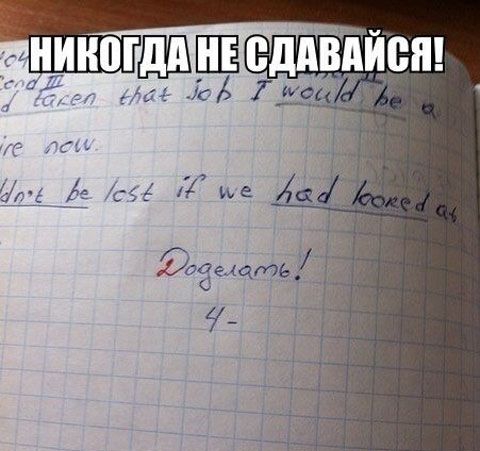 НИКОГДА НЕ СДАВАЙСЯ!
Cond III
taken that job I would be a
now.
be lost if we had looked at
Доделать!
4-